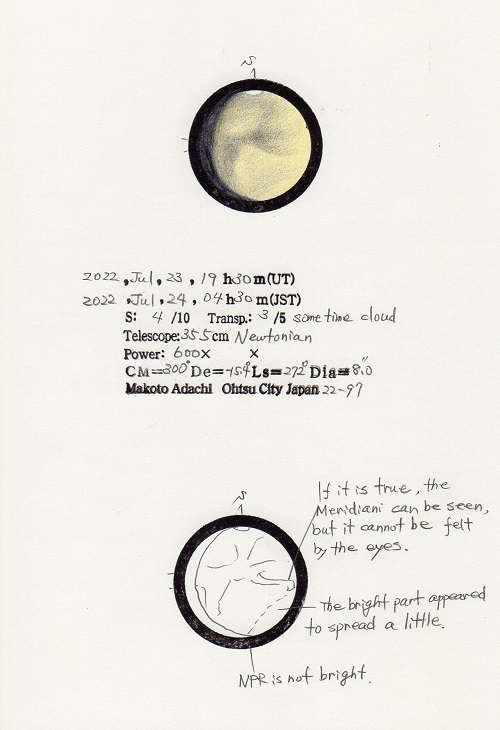 S
2022, Jul, 23, 19 h 30 m (UT)
2022, Jul, 24, 04 h 30 m (JST)
S: 4 /10 Transp.: 3 /5 some time cloud
Telescope: 355 cm Newtonian
Power: 600 X X
CM=300° De=-15.9° Ls=272° Dia=8.0"
Makoto Adachi Ohtsu City Japan 22-97
S
If it is true, the
Meridiani can be seen,
but it cannot be felt
by the eyes.
The bright part appeared
to spread a little.
NPR is not bright.